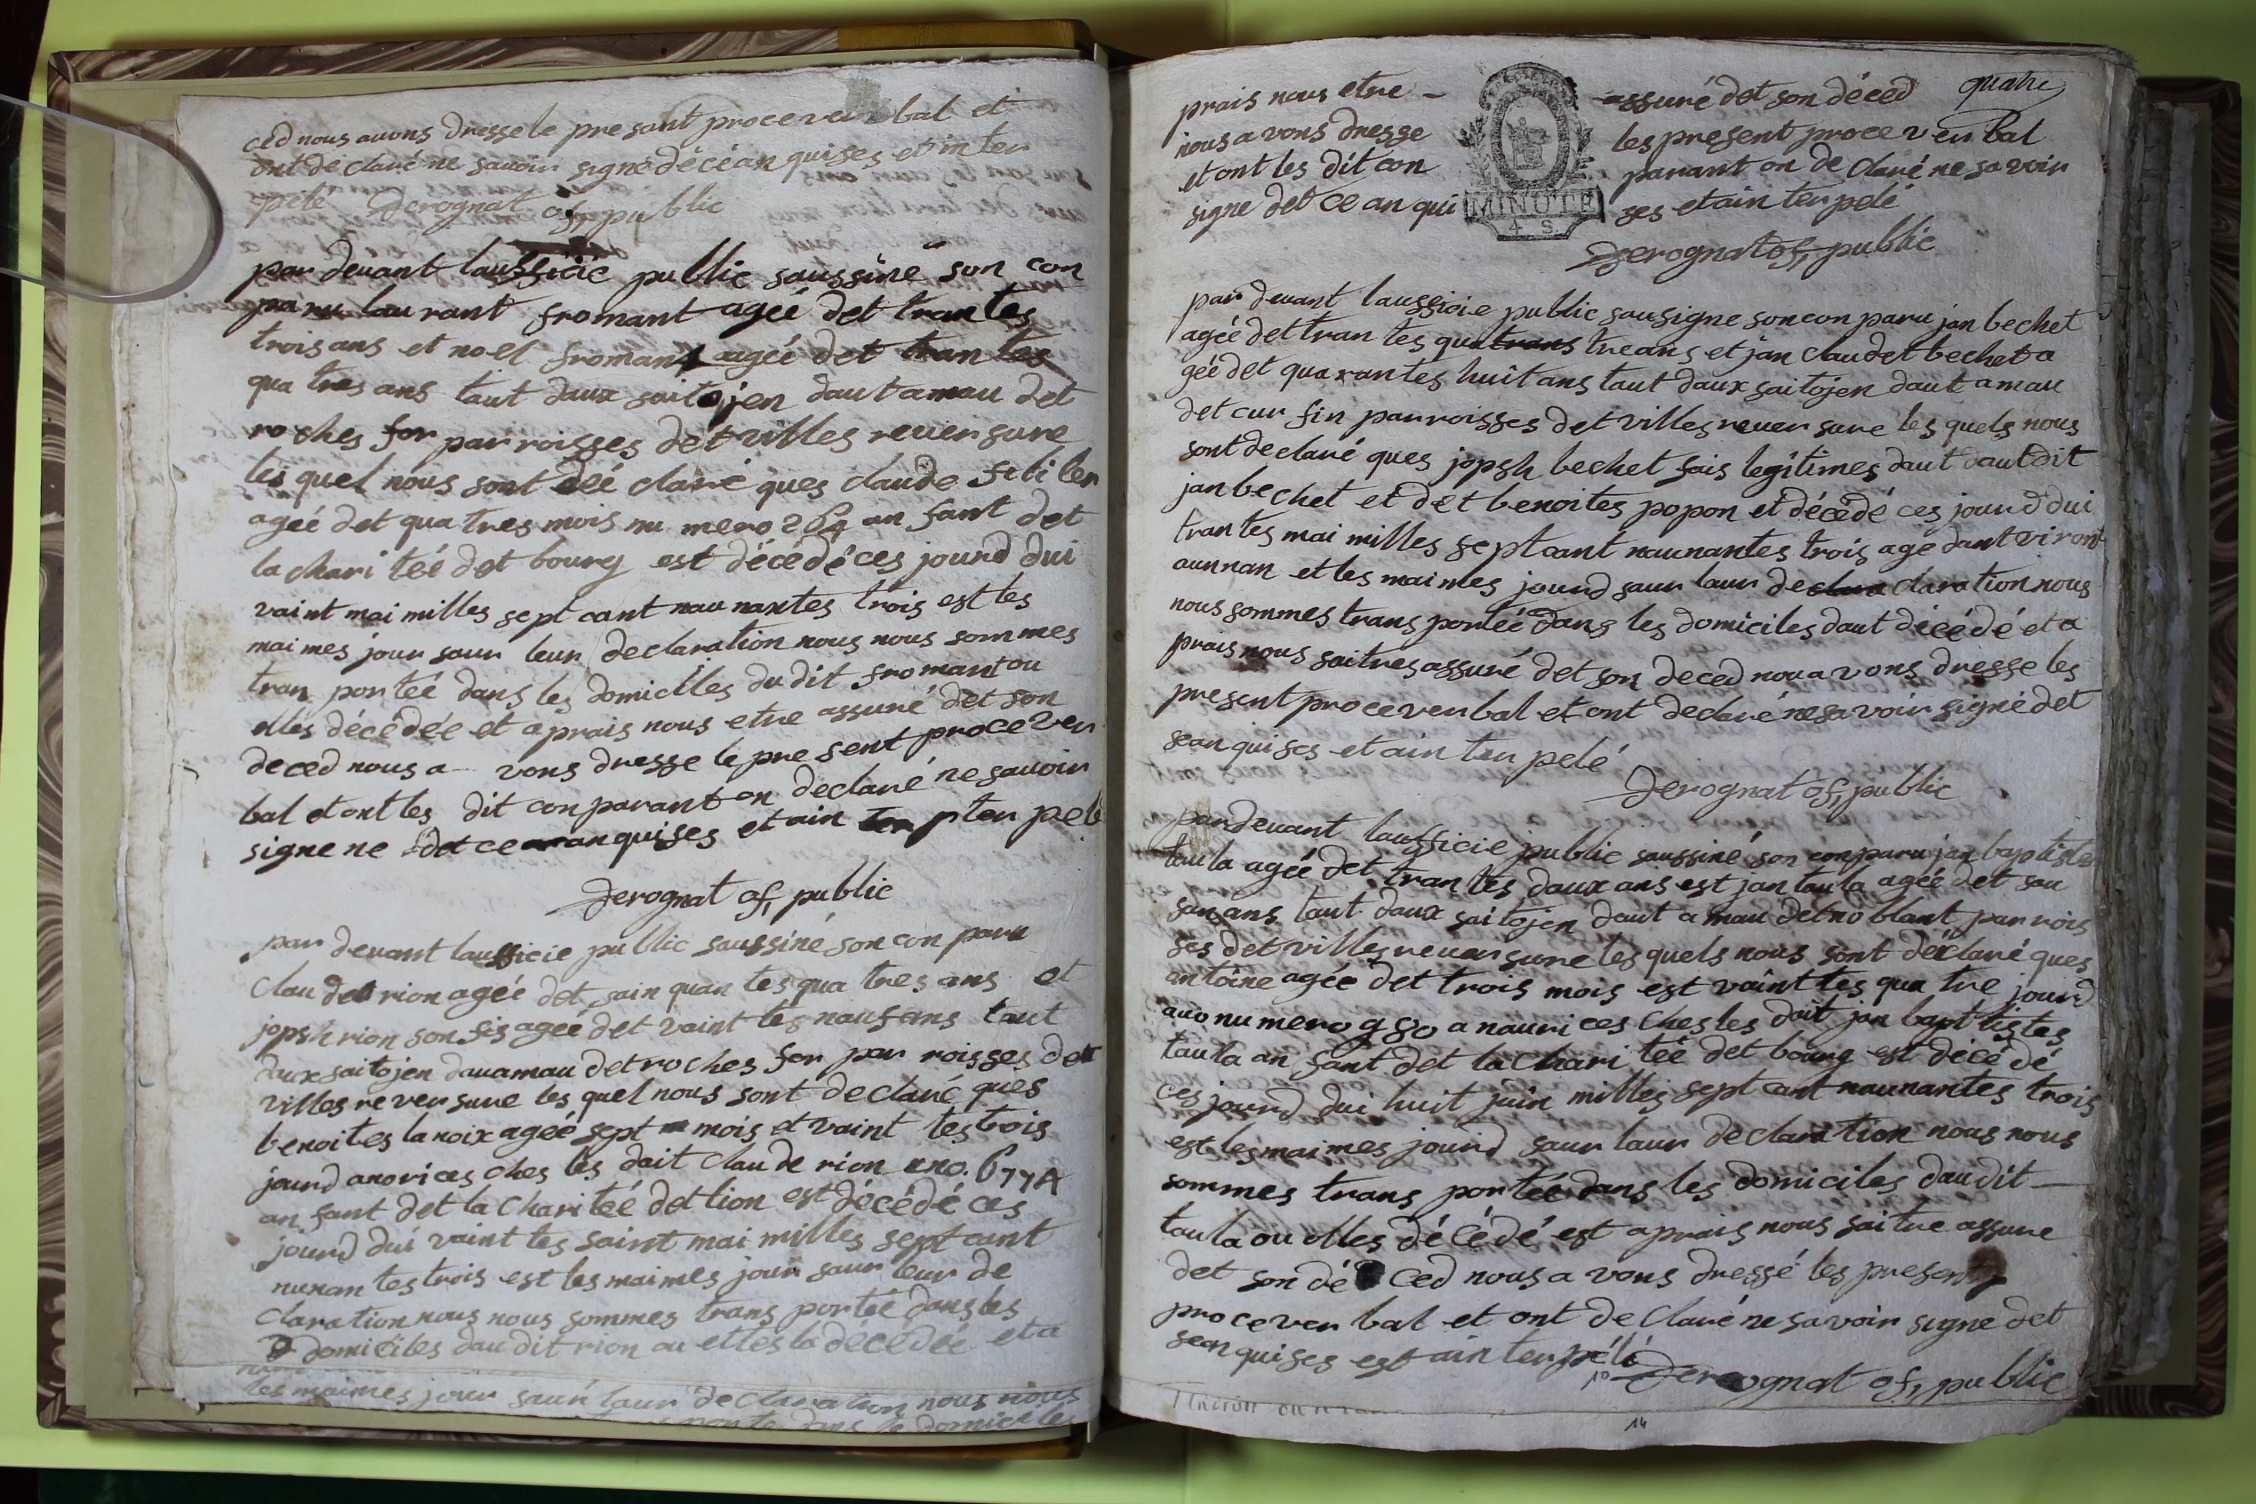 ced nous auons dresse le presant procever bal et
ont de claré ne sauoir signé décéan quises et in ter
pelé derognat of, public
par devant laussicie public saussiné son con
paru laurant fromant ageé det trantes
trois ans et noel fromant ageé det trantes
qua tres ans taut daux saitojen daut amau det
roches for parroisses det villes reuersure
les quel nous sont dé claré ques claude
ageé det qua tres mois nu mero 264 an fant det
la chari teé det bourg est décédé ces jourd dui
vaint mai milles sept cant nau nantes trois est les
mai mes jour saur leur declaration nous nous sommes
tran porteé dans les domicilles du dit fromant ou
elles décédée et aprais nous etre assuré det son
deced nous a vons dresse le pre sent procever
bal et ont les dit conparant on declaré ne sauoir
signe ne det ce an quises et ain pter pelé
derognat of, public
par devant laussicie public saussiné son con paru
claudet rion ageé det sain quan tes qua tres ans et
jopsh rion son fis ageé det vaint les nauf ans taut
daux saitojen dauamau det roches for par roisses det
villes re ver sure les quel nous sont declaré ques
benoites la noix ageé sept mois et vaint les trois
jourd anorices ches les dait claude rion no. 677A
an fant det la chari teé det lion est décédé ces
jourd dui vaint les saint mai milles sept cant
nunan tes trois est les maimes jour saur leur de
claration nous nous sommes trans porteé dans les
domiciles dau dit rion ou elles la décédée et a
les maimes jour saur laur de claration nous nous
porte dans le domiciles
quatre
prais nous etre – assuré det son déced
nous a vons dresse les present procever bal
et ont les dit con parant on de claré ne savoir
signe det ce an qui ses et ain ter pelé
MINUTE
4 S
derognat of, public
par devant laussicie public sausigne son con paru jan bechet
ageé det tran tes qua trans tre ans et jan claudet bechet a
geé det quarantes huit ans taut daux saitojen daut amau
det cur fin parroisses det villes reuer sure les quels nous
sont declaré ques jopsh bechet fais legitimes daut dautdit
jan bechet et det benoites popon et décédé ces jourd dui
trantes mai milles sept cant naunantes trois agé dant viront
aunnan et les maimes jourd saur laur de clara claration nous
nous sommes trans porteé dans les domiciles daut décédé et a
prais nous saitres assuré det son deced nou a vons dresse les
present procever bal et ont declaré ne savoir signé det
sean quises et ain ter pelé
derognat of, public
par devant laufficie public saussiné son conparu jan baptiste
taula ageé det tran tes daux ans est jan taula ageé det soi
san ans taut daux saitojen daut a mau det no blant parrois
ses det villes reuer sure les quels nous sont déclaré ques
antoine ageé det trois mois est vaint tes qua tre jourd
auo numero 980 a nauri ces ches les dait jan baptistes
taula an fant det la chari teé det bourg est décé dé
ces jourd dui huit juin milles sept cant naunantes trois
est les maimes jourd saur laur declaration nous nous
sommes trans porteé dans les domiciles daudit
taula ou elles dé cédé est aprais nous saitre assure
det son dé ced nous a vons dressé les present
procever bal et ont de claré ne savoir signe det
sean quises est ain ter pélé
derognat of, public
14